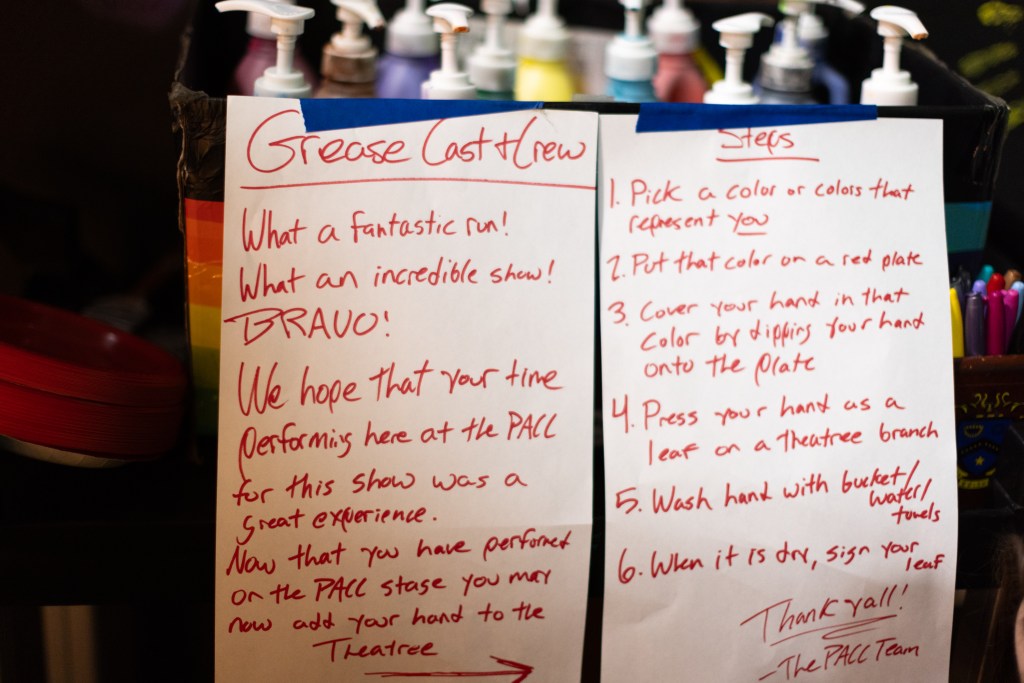 Grease Cast + Crew
What a fantastic run!
What an incredible show!
BRAVO!
We hope that your time
performing here at the PACC
for this show was a
great experience.
Now that you have performed
on the PACC stage you may
now add your hand to the
Theatree
Steps
1. Pick a color or colors that
represent you
2. Put that color on a red plate
3. Cover your hand in that
color by dipping your hand
onto the plate
4. Press your hand as a
leaf on a theatree branch
5. Wash hand with bucket/
water/
towels
6. When it is dry, sign your
leaf
Thank yall!
- The PACC Team